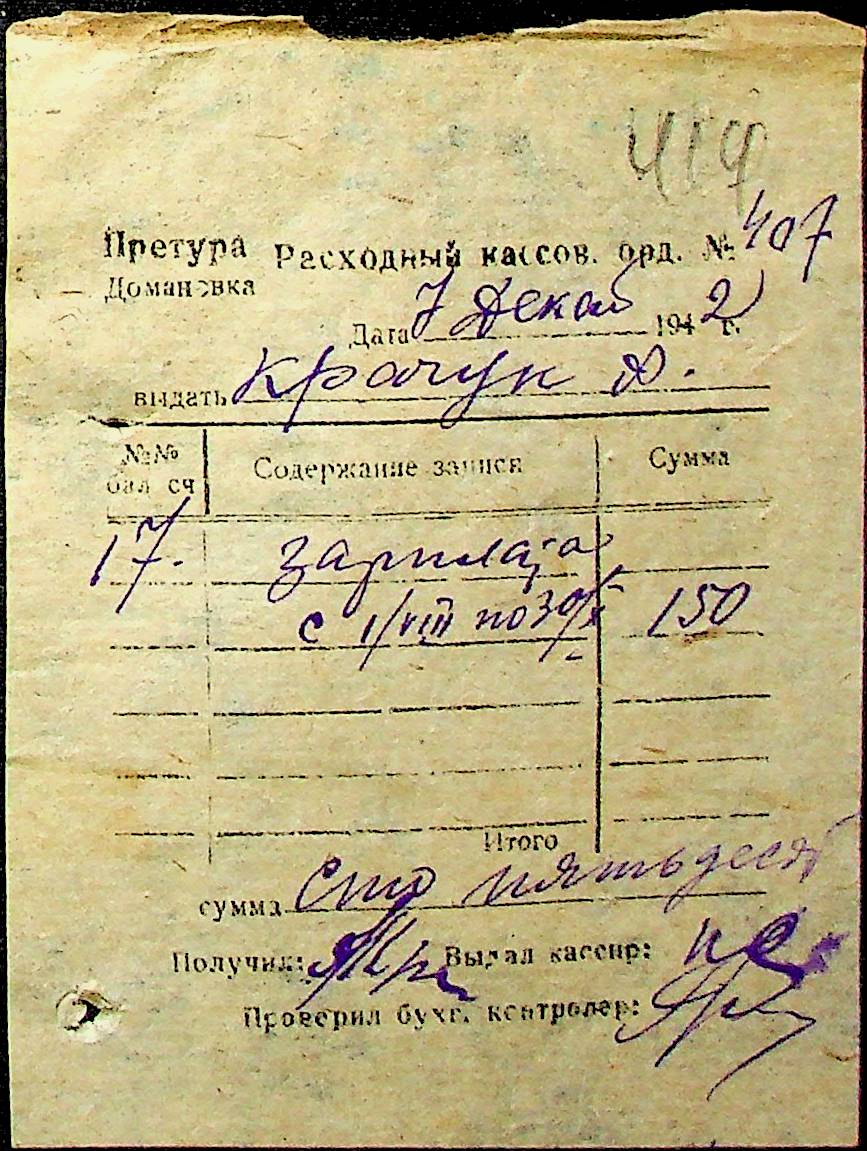 419
Претура Расходный кассов. орд. № 407
Домановка
Дата 7 Декаб 1942 г.
выдать Крачук
№№ бал сч Содержание записи Сумма
17. зарплата
с 1/VIII по 30/ 150
Итого
сумма Сто пятьдесят
Получил: Выдал кассир:
Проверил бухг. контролер: